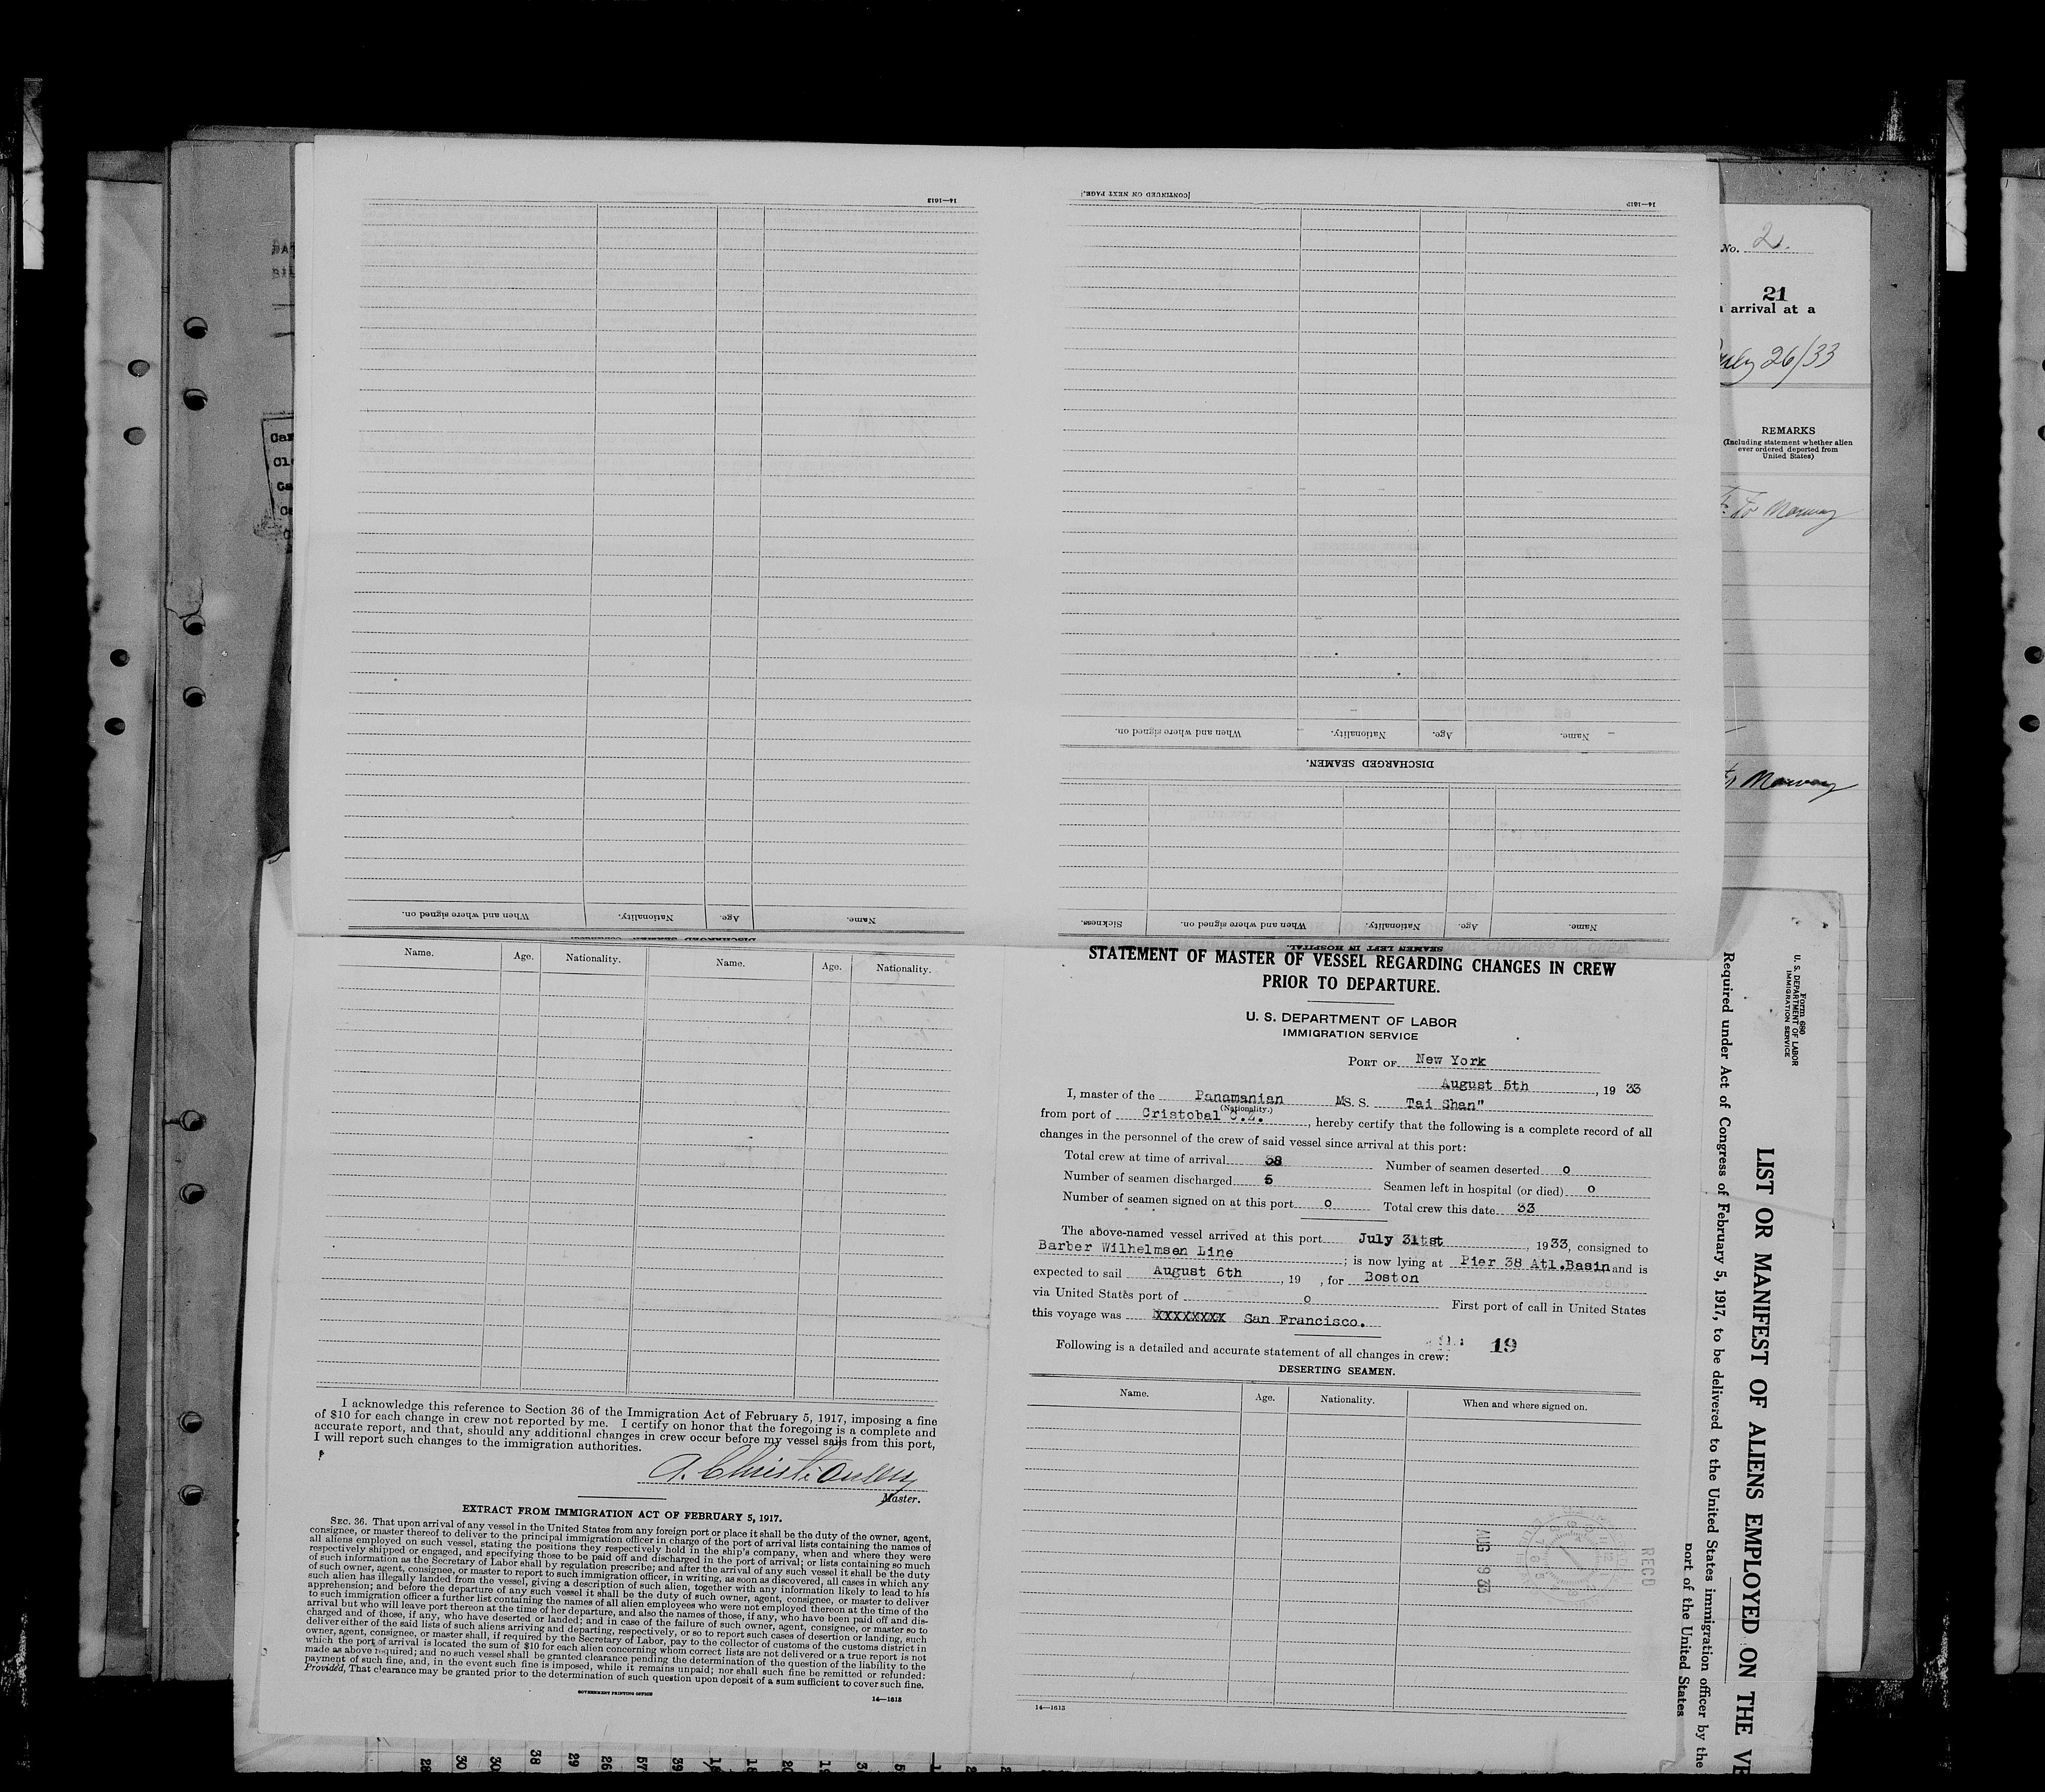 [CONTINUED ON NEXT PAGE.]
14—1613
14—1613
Name. Age. Nationality. When and where signed on.
DISCHARGED SEAMEN.
Name. Age. Nationality. When and where signed on.
Name. Age. Nationality. When and where signed on. Sickness.
SEAMEN LEFT IN HOSPITAL.
No. 2
21
arrival at a
July 26/33
REMARKS
(Including statement whether alien
ever ordered deported from
United States)
To Norway
Norway
Name. Age. Nationality. Name. Age. Nationality.
I acknowledge this reference to Section 36 of the Immigration Act of February 5, 1917, imposing a fine
of $10 for each change in crew not reported by me. I certify on honor that the foregoing is a complete and
accurate report, and that, should any additional changes in crew occur before my vessel sails from this port,
I will report such changes to the immigration authorities.
A. Christiansen
Master.
EXTRACT FROM IMMIGRATION ACT OF FEBRUARY 5, 1917.
SEC. 36. That upon arrival of any vessel in the United States from any foreign port or place it shall be the duty of the owner, agent,
consignee, or master thereof to deliver to the principal immigration officer in charge of the port of arrival lists containing the names of
all aliens employed on such vessel, stating the positions they respectively hold in the ship's company, when and where they were
respectively shipped or engaged, and specifying those to be paid off and discharged in the port of arrival; or lists containing so much
of such information as the Secretary of Labor shall by regulation prescribe; and after the arrival of any such vessel it shall be the duty
of such owner, agent, consignee, or master to report to such immigration officer, in writing, as soon as discovered, all cases in which any
such alien has illegally landed from the vessel, giving a description of such alien, together with any information likely to lead to his
apprehension; and before the departure of any such vessel it shall be the duty of such owner, agent, consignee, or master to deliver
to such immigration officer a further list containing the names of all alien employees who were not employed thereon at the time of the
arrival but who will leave port thereon at the time of her departure, and also the names of those, if any, who have been paid off and dis-
charged and of those, if any, who have deserted or landed; and in case of the failure of such owner, agent, consignee, or master so to
deliver either of the said lists of such aliens arriving and departing, respectively, or so to report such cases of desertion or landing, such
owner, agent, consignee, or master shall, if required by the Secretary of Labor, pay to the collector of customs of the customs district in
which the port of arrival is located the sum of $10 for each alien concerning whom correct lists are not delivered or a true report is not
made as above required; and no such vessel shall be granted clearance pending the determination of the question of the liability to the
payment of such fine, and, in the event such fine is imposed, while it remains unpaid; nor shall such fine be remitted or refunded:
Provided, That clearance may be granted prior to the determination of such question upon deposit of a sum sufficient to cover such fine.
GOVERNMENT PRINTING OFFICE
14—1613
STATEMENT OF MASTER OF VESSEL REGARDING CHANGES IN CREW
PRIOR TO DEPARTURE.
U. S. DEPARTMENT OF LABOR
IMMIGRATION SERVICE
PORT OF New York
August 5th, 1933
I, master of the Panamanian MS. S. Tai Shan"
(Nationality.)
from port of Cristobal C.Z., hereby certify that the following is a complete record of all
changes in the personnel of the crew of said vessel since arrival at this port:
Total crew at time of arrival 38 Number of seamen deserted 0
Number of seamen discharged 5 Seamen left in hospital (or died) 0
Number of seamen signed on at this port 0 Total crew this date 33
The above-named vessel arrived at this port July 31st, 1933, consigned to
Barber Wilhelmsen Line; is now lying at Pier 38 Atl.Basin and is
expected to sail August 6th, 19 , for Boston
via United States port of 0 First port of call in United States
this voyage was XXXXXXXX San Francisco.
19
Following is a detailed and accurate statement of all changes in crew:
DESERTING SEAMEN.
Name. Age. Nationality. When and where signed on.
AUG 9 33
RECD
14—1613
Form 680
U. S. DEPARTMENT OF LABOR
IMMIGRATION SERVICE
LIST OR MANIFEST OF ALIENS EMPLOYED ON THE VE
Required under Act of Congress of February 5, 1917, to be delivered to the United States immigration officer by the
port of the United States